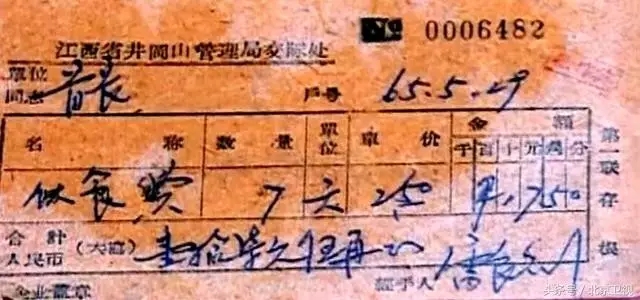 № 0006482
江西省井岡山管理局交际处
單位
同志 首長 戶号 65.5.29
名 称 數 量 單位 單 价 金 額
千 百 十 元 角 分
伙食费 7 天 250 17.50
合 計
人民币 (大寫) 壹拾柒元伍角
經手人
企业蓋章
第一联存根
头条号 / 北京卫视